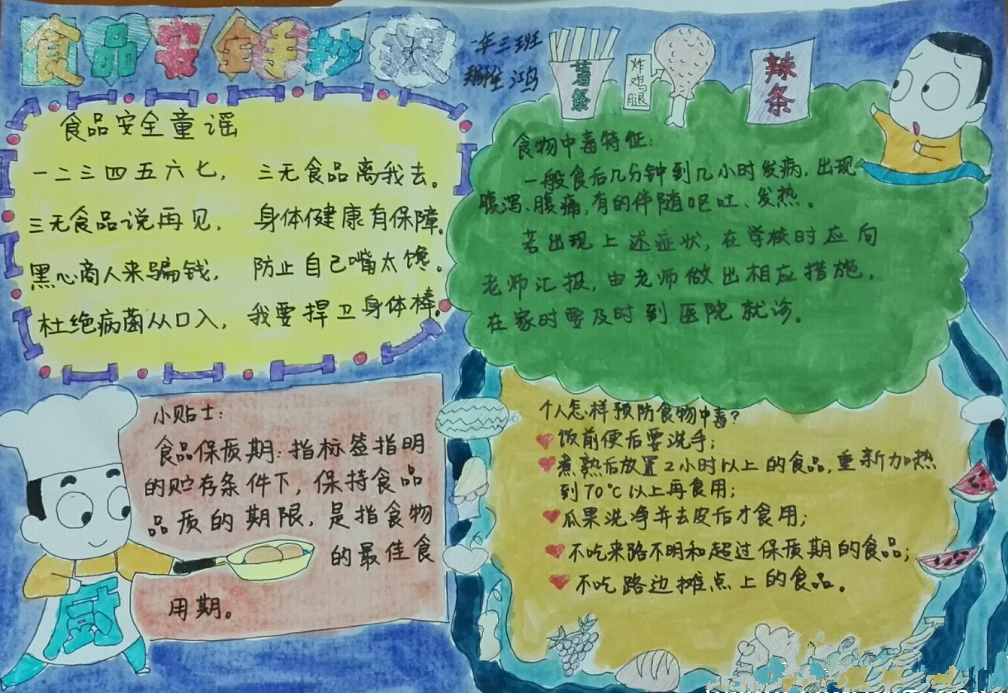 食品安全手抄报
一年三班
薯条
炸鸡腿
辣条
食品安全童谣
一二三四五六七， 三无食品离我去。
三无食品说再见， 身体健康有保障。
黑心商人来骗钱， 防止自己嘴太馋。
杜绝病菌从口入， 我要捍卫身体棒。
食物中毒特征：
一般食后几分钟到几小时发病，出现
腹泻、腹痛，有的伴随呕吐、发热。
若出现上述症状，在学校时应向
老师汇报，由老师做出相应措施，
在家时要及时到医院就诊。
小贴士：
食品保质期：指标签指明
的贮存条件下，保持食品
品质的期限，是指食物
的最佳食
用期。
个人怎样预防食物中毒？
饭前便后要洗手；
煮熟后放置2小时以上的食品，重新加热
到70℃以上再食用；
瓜果洗净并去皮后才食用；
不吃来路不明和超过保质期的食品；
不吃路边摊点上的食品。